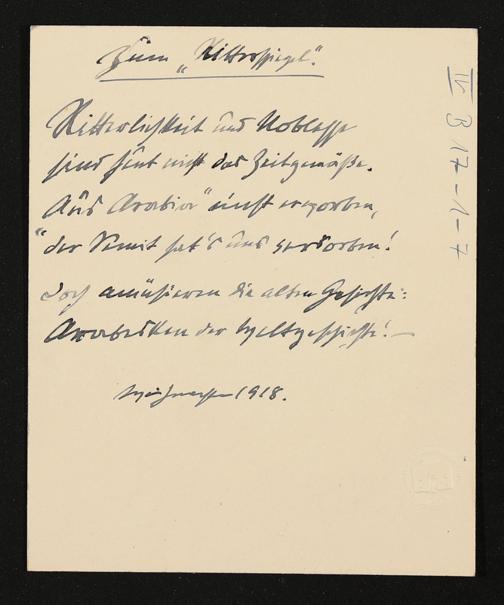 Zum „Ritterspiegel“.
Ritterlichkeit und Noblesse
sind heut nicht das Zeitgemäße.
Aus Arabia einst erworben,
"der Semit hat's uns verdorben!
Doch amüsieren die alten Geschichte:
Arabesken der Weltgeschichte! —
Weihnachten 1918.
IV B 17-1-7